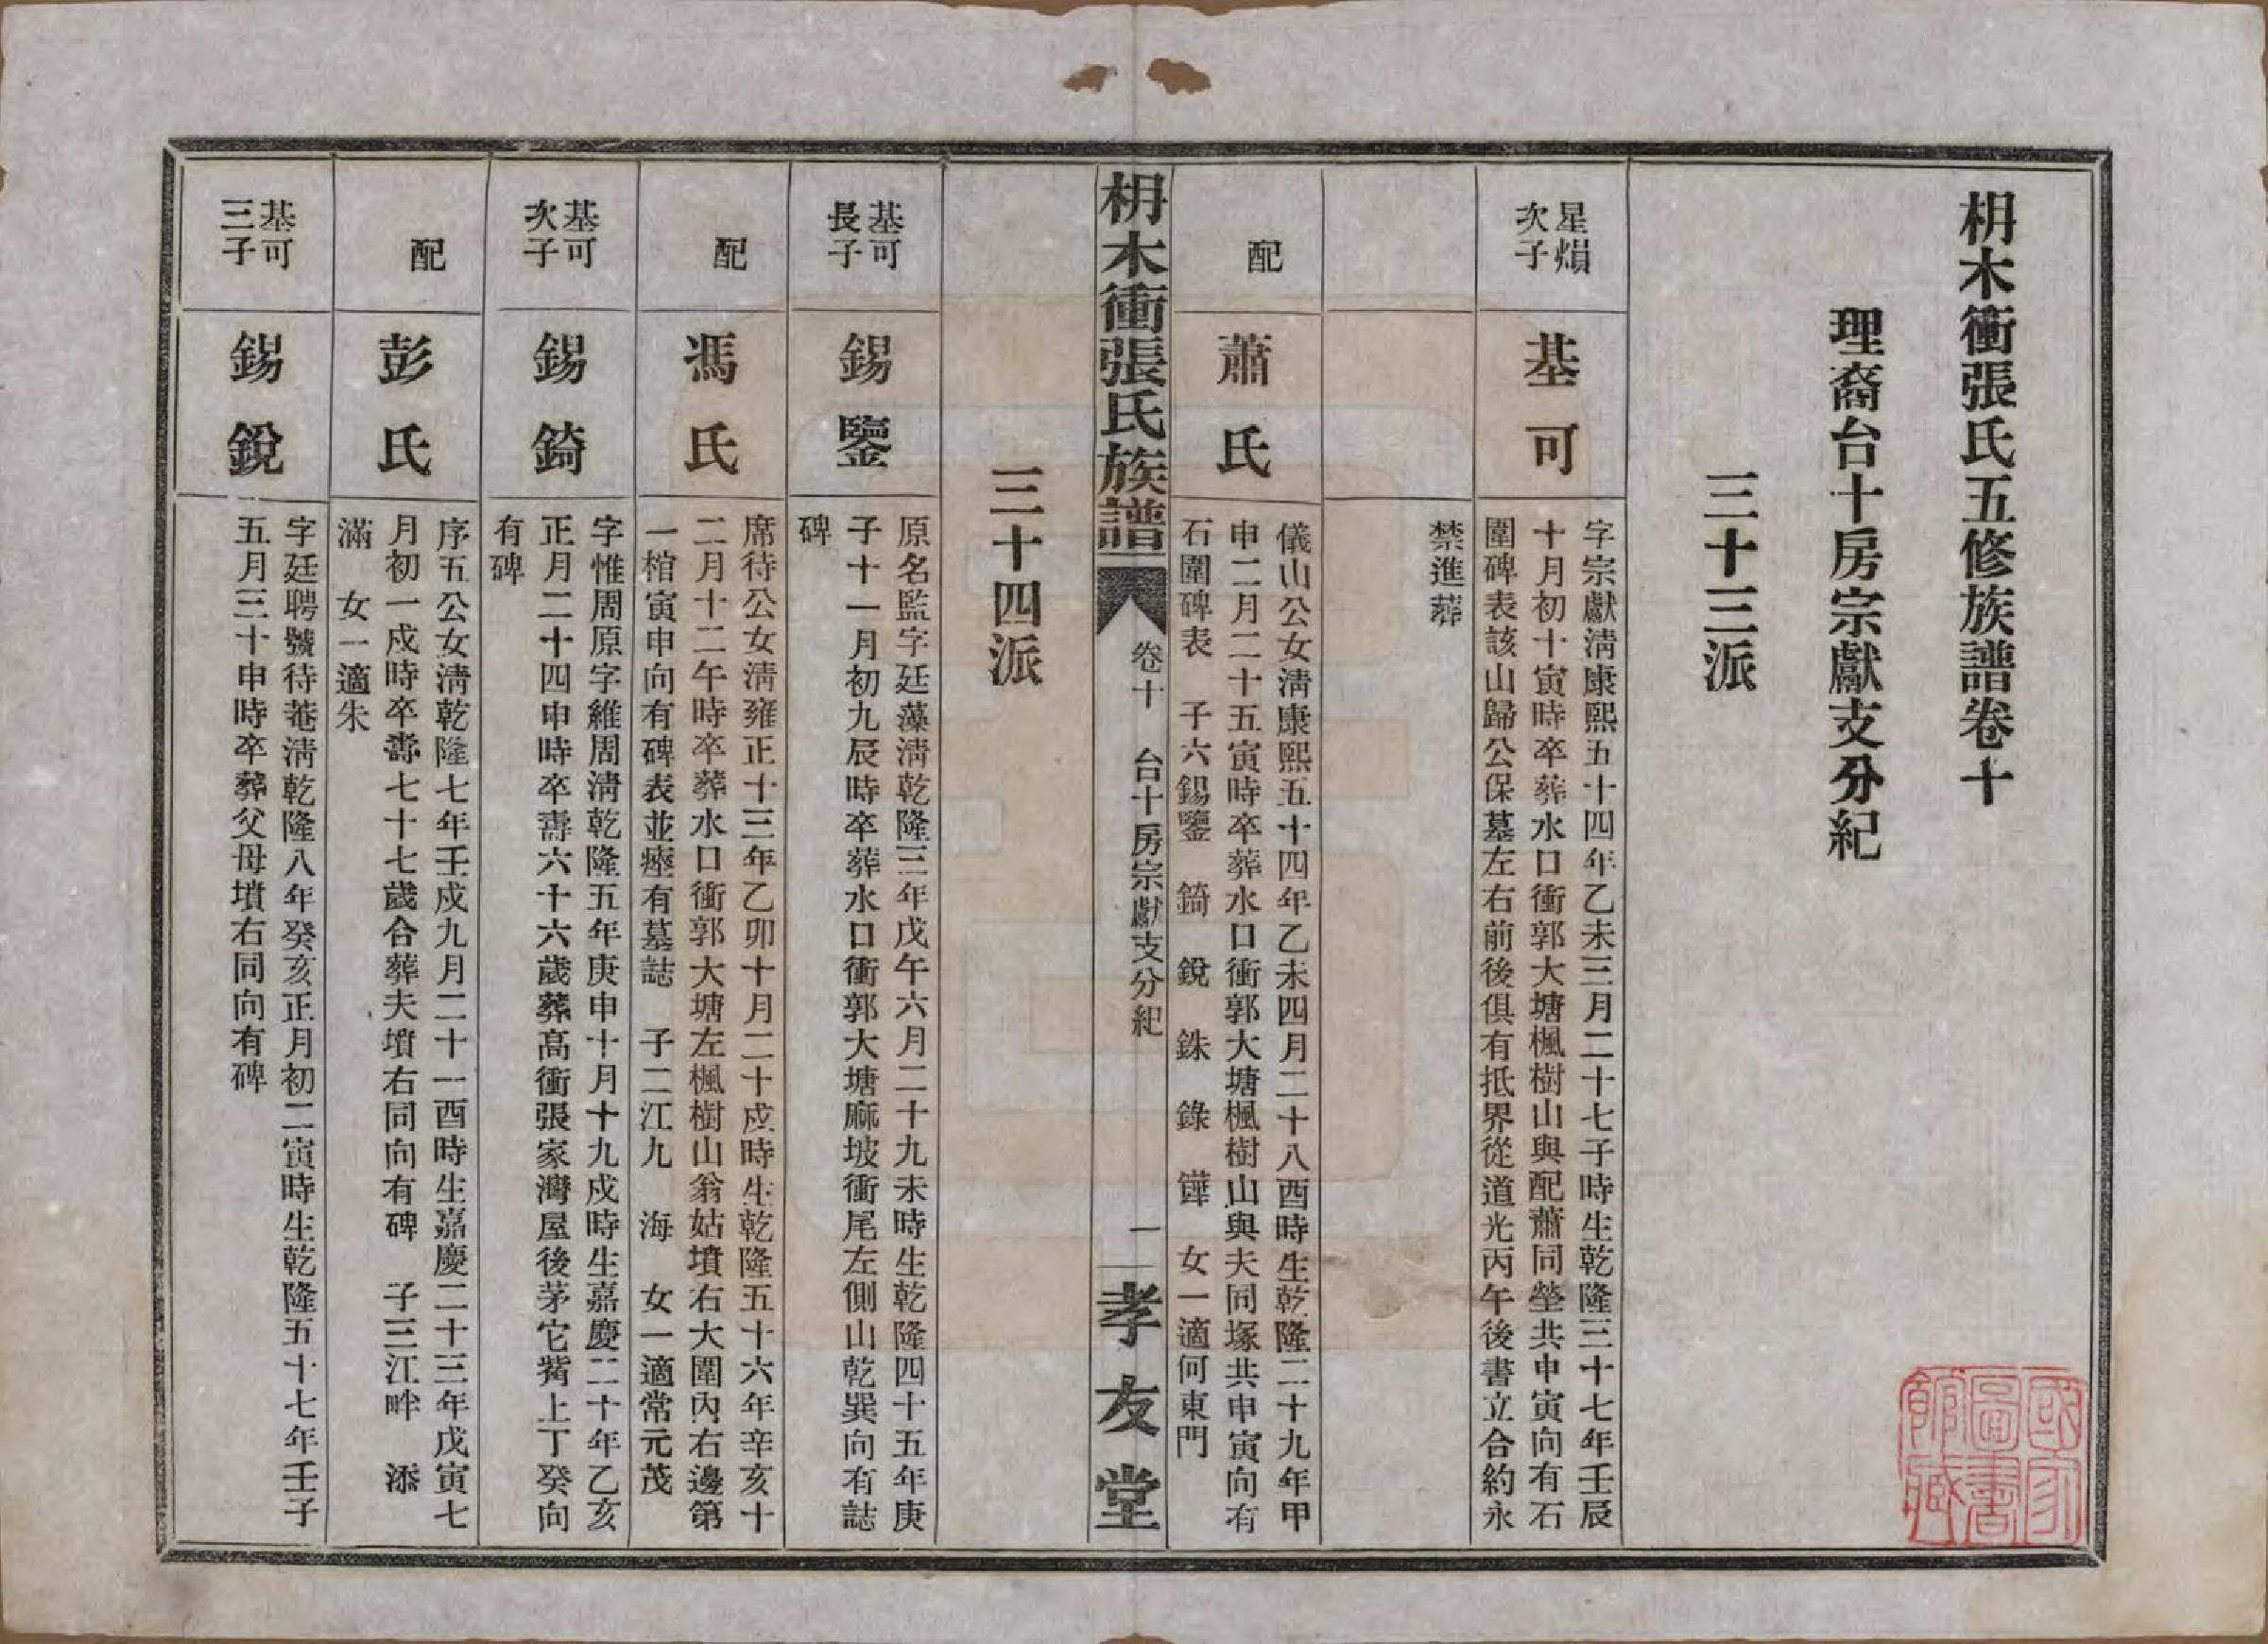 枬木衝張氏五修族譜卷十
理裔台十房宗獻支分紀
三十三派
星熉
次子
基可
字宗獻淸康熙五十四年乙未三月二十七子時生乾隆三十七年壬辰
十月初十寅時卒葬水口衝郭大塘楓樹山與配蕭同塋共申寅向有石
圍碑表該山歸公保墓左右前後俱有抵界從道光丙午後書立合約永
禁進葬
配
蕭氏
儀山公女淸康熙五十四年乙未四月二十八酉時生乾隆二十九年甲
申二月二十五寅時卒葬水口衝郭大塘楓樹山與夫同塚共申寅向有
石圍碑表 子六錫鑒 錡 銳 銖 錄 鏵 女一適何東門
枬木衝張氏族譜
卷十 台十房宗獻支分紀
一
孝友堂
三十四派
基可
長子
錫鑒
原名監字廷藻淸乾隆三年戊午六月二十九未時生乾隆四十五年庚
子十一月初九辰時卒葬水口衝郭大塘廠坡衝尾左側山乾巽向有誌
碑
配
馮氏
席待公女淸雍正十三年乙卯十月二十戌時生乾隆五十六年辛亥十
二月十二午時卒葬水口衝郭大塘左楓樹山翁姑墳右大圍內右邊第
一棺寅申向有碑表並瘞有墓誌 子二江九 海 女一適常元茂
基可
次子
錫錡
字惟周原字維周淸乾隆五年庚申十月十九戌時生嘉慶二十年乙亥
正月二十四申時卒壽六十六歲葬高衝張家灣屋後茅它觜上丁癸向
有碑
配
彭氏
序五公女淸乾隆七年壬戌九月二十一酉時生嘉慶二十三年戊寅七
月初一戌時卒壽七十七歲合葬夫墳右同向有碑 子三江畔 添
滿 女一適朱
基可
三子
錫銳
字廷聘號待菴淸乾隆八年癸亥正月初二寅時生乾隆五十七年壬子
五月三十申時卒葬父母墳右同向有碑
國家
圖書
館藏